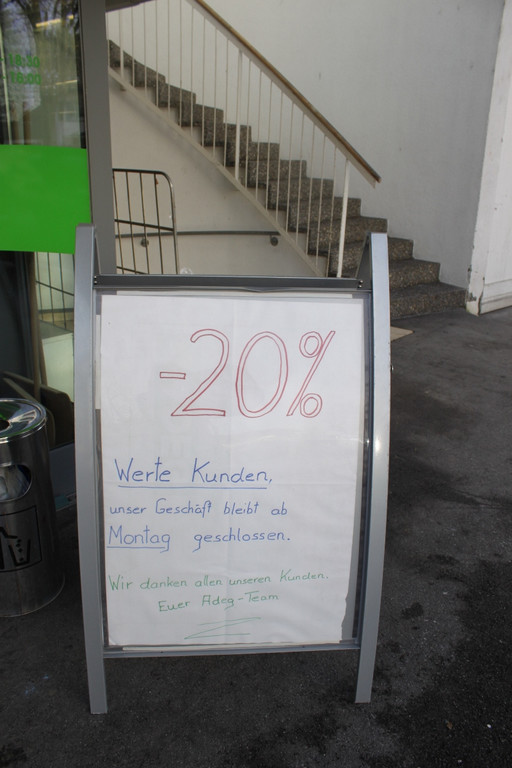 -20%
Werte Kunden,
unser Geschäft bleibt ab
Montag geschlossen.
Wir danken allen unseren Kunden.
Euer Adeg-Team